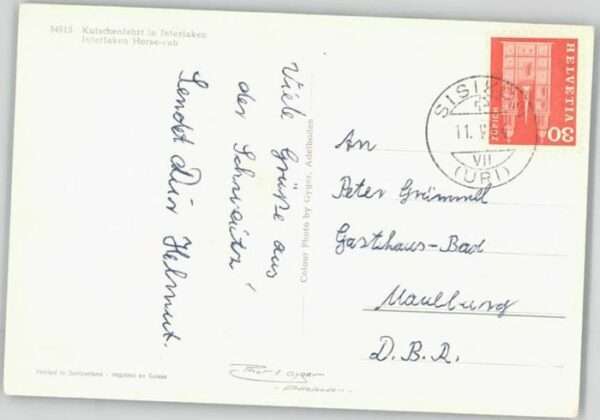 54513 Kutschenfahrt in Interlaken
Interlaken Horse-cab
Viele Grüße aus
der Schweitz
Sendet Dir Helmut.
Colour Photo by Gyger, Adelboden
HELVETIA
ZÜRICH
30
11. V
VII
(URI)
An
Peter Grümmel
Gasthaus-Bad
Maulburg
D.B.R.
Printed in Switzerland - Imprimé en Suisse
Gyger
Adelboden